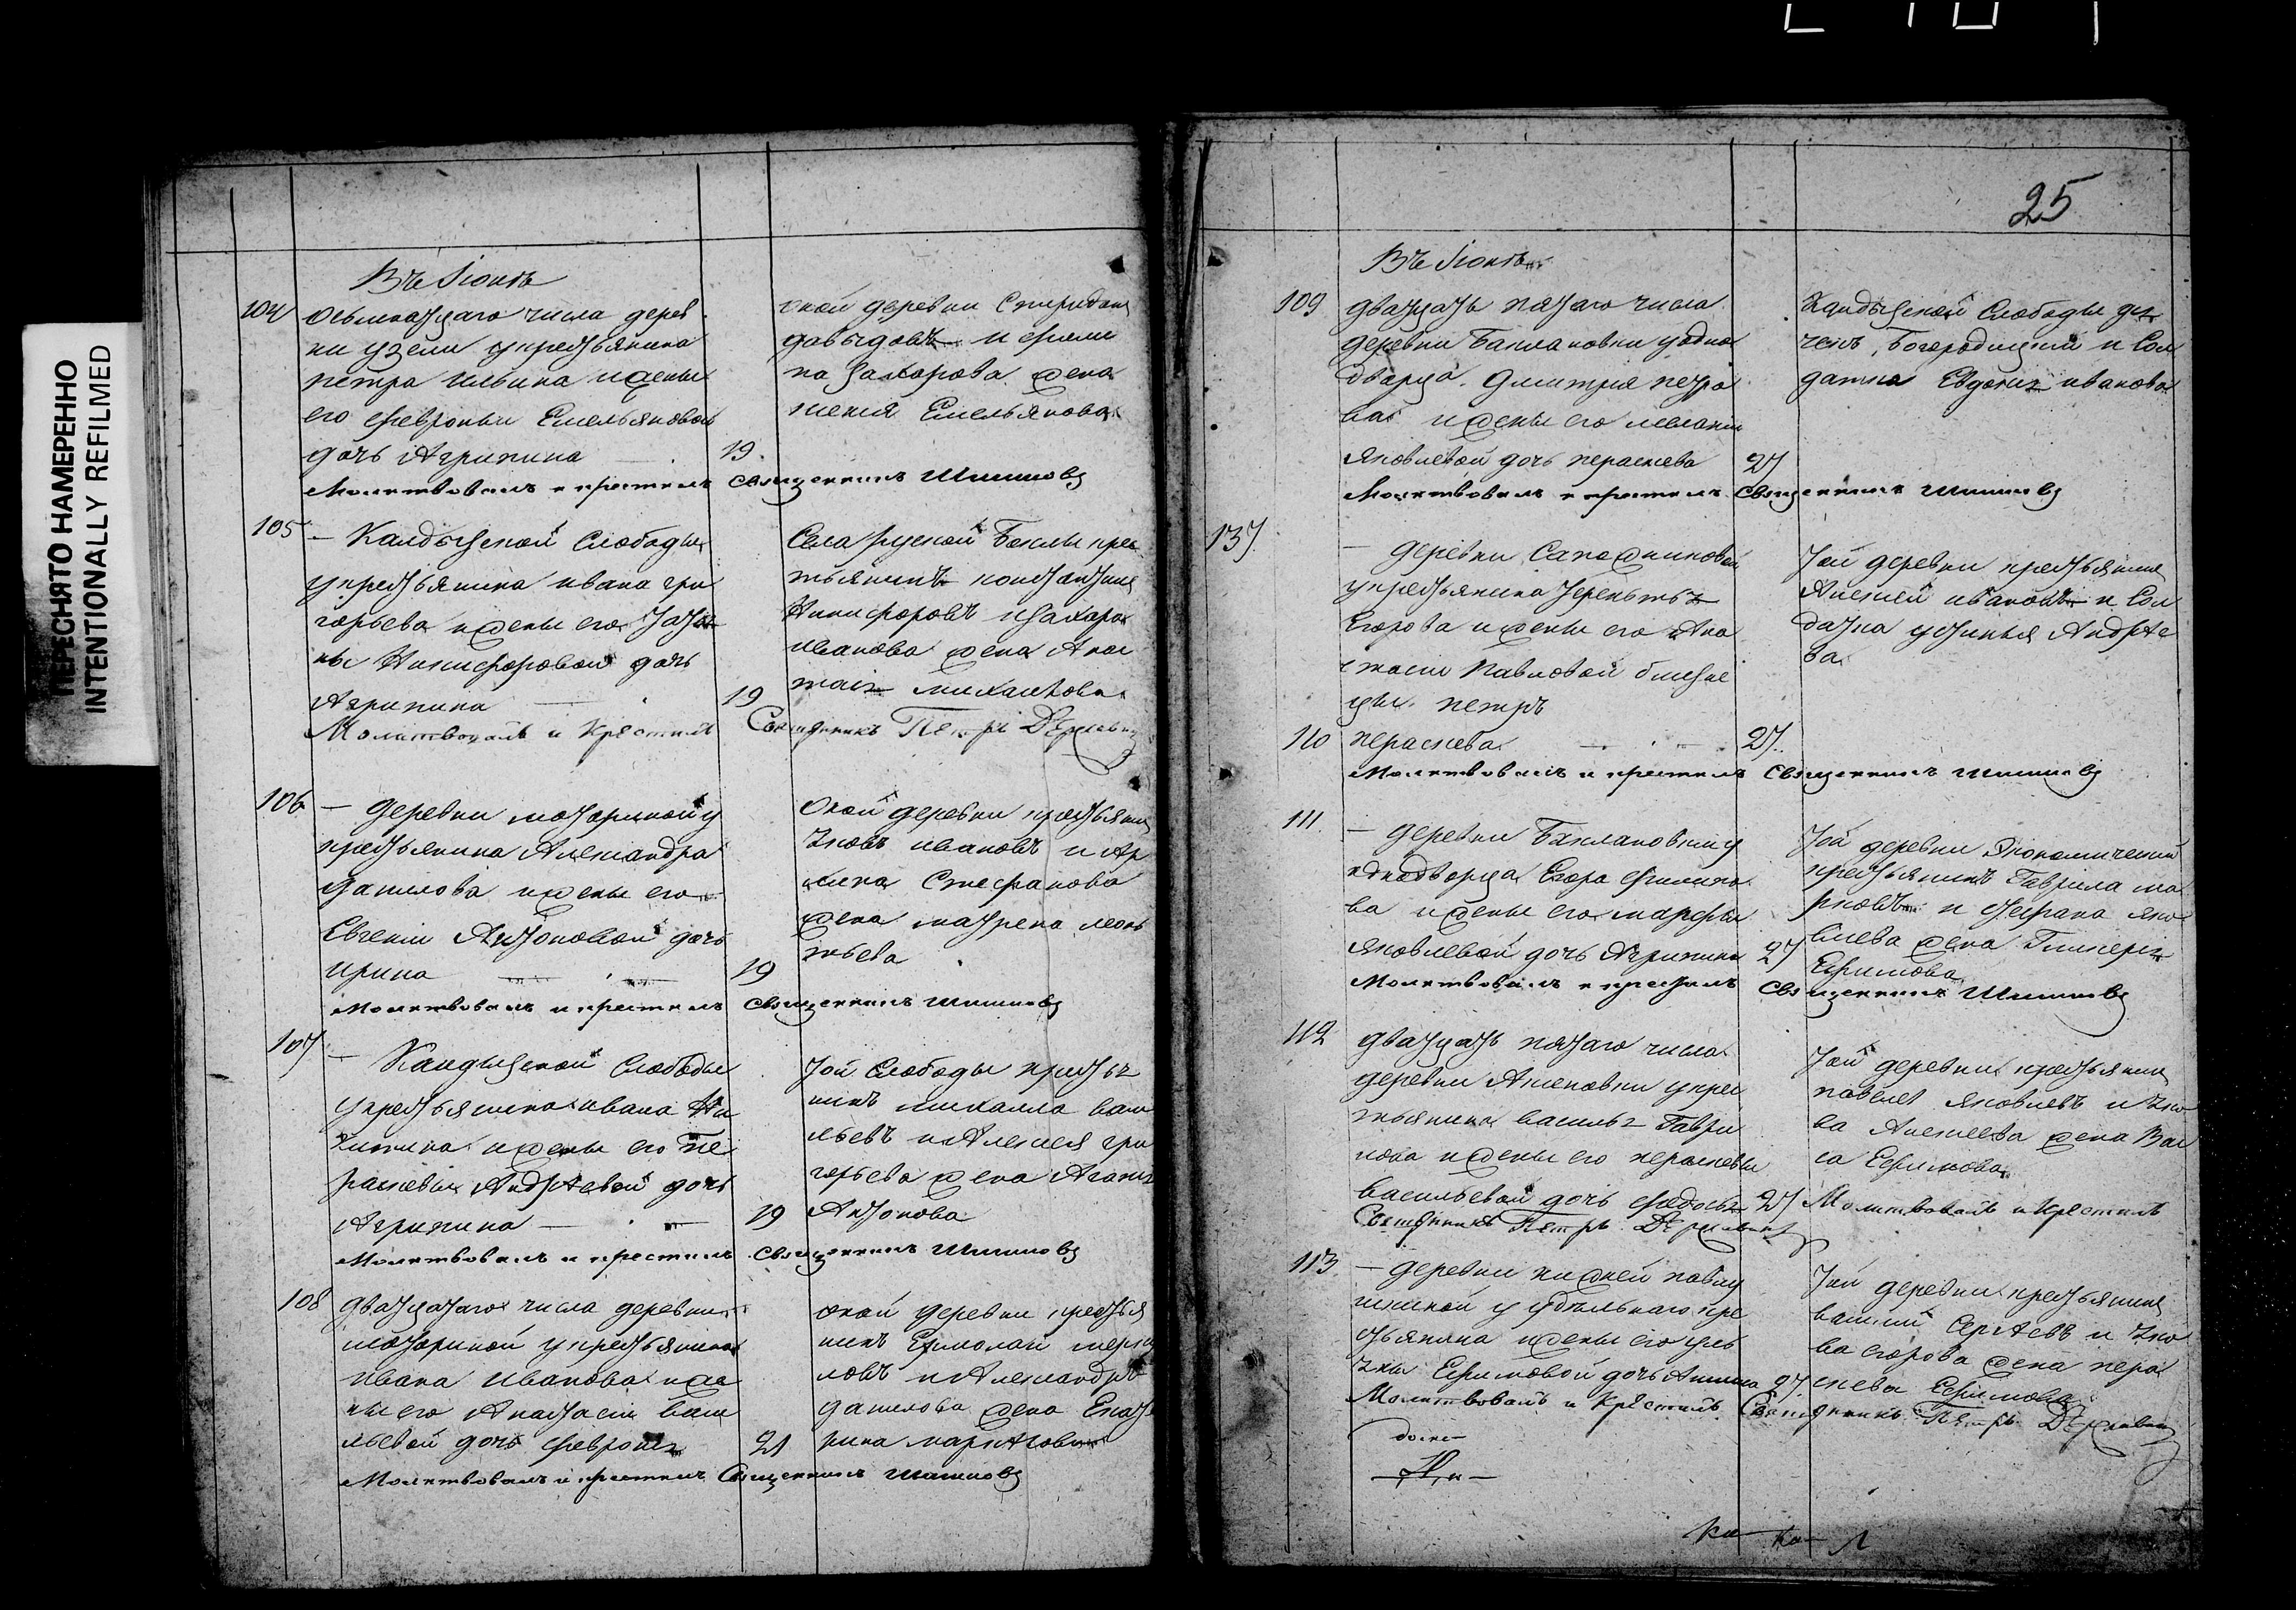 ПЕРЕСНЯТО НАМЕРЕННО
INTENTIONALLY REFILMED
Въ Іюнѣ
104
осьмнатцаго числа дерев
ни узели укрестьянина
петра ильина ижены
его февроньи Емельяновой
дочь Агрипина
19.
оной деревни Спиридонъ
давыдовъ и
захарова жена
Емельянова
Молитвовалъ и крестилъ Священникъ Шишковъ
105
— Кандызской Слободы
укрестьянина ивана гри
горьева ижены его Татья
ны Никифоровой дочь
Агрипина
19
Села руской Боклы крес
тьянинъ констактинъ
Никифоровъ изахара
иванова жена Анас
тасія михайлова
Молитвовалъ и Крестилъ Священникъ Петръ Державинъ
106
— деревни моториной у
крестьянина Александра
данилова ижены его
Евгеніи Антоновой дочь
ирина
19
Оной деревни крестьянинъ
Яковъ ивановъ и
Стефанова
жена матрена леонь
тьева
Молитвовалъ и крестилъ Священникъ Шишковъ
107
— Кандызской Слободы
укрестьянина ивана Ни
китина ижены его Пе
расковьи Андреевой дочь
Агрипина
19
Той Слободы крестья
нинъ михаила васи
льевъ и Алексея гри
горьева жена Агафія
Антонова
Молитвовалъ и крестилъ Священникъ Шишковъ
108
дватцатаго числа деревни
моториной укрестьянина
ивана иванова иже
ны его Анастасіи васи
льевой дочь февронія
21
оной деревни крестья
нинъ Ермолай
ловъ и Александра
данилова жена Екате
рина
Молитвовалъ и крестилъ Священникъ Шишковъ
25
Въ Іюнѣ
109
дватцать пятаго числа
деревни Баклановки уодно
дворца Дмитрия петро
ва ижены его меланіи
яковлевой дочь пераскева
27
Кандызской Слободы
Богородицкій и Сол
датка Евдокия иванова
Молитвовалъ и крестилъ Священникъ Шишковъ
137.
— деревни Сапожниковой
укрестьянина Терентья
Егорова ижены его Ана
стасіи Павловой близне
цы петръ
110
пераскева
27.
Той деревни крестьянинъ
Алексей ивановъ и Сол
датка устинья Андрее
ва
Молитвовалъ и крестилъ Священникъ Шишковъ
111.
— деревни Баклановки у
однодворца Егора филипо
ва ижены его марфы
яковлевой дочь Агрипина
27
Той деревни Экономический
крестьянинъ Гаврила ма
рковъ и Стефана яко
влева жена Гликерія
Ефимова
Молитвовалъ и крестилъ Священникъ Шишковъ
112
дватцать пятаго числа
деревни Аксеновки укрес
тьянина василья Гаври
лова ижены его перасковьи
васильевой дочь федосья
27
Той деревни крестьянинъ
павелъ яковлевъ и Яко
ва Алексеева жена Вас
са Ефимова
Молитвовалъ и Крестилъ
Священникъ Петръ Державинъ
113
— деревни нижней павлу
шкиной у удельнаго кре
стьянина ижены его
Ефимовой дочь Анисья
27.
Той деревни крестьянинъ
василий Сергеевъ и Яко
ва егорова жена пера
скева Ефимова
Молитвовалъ и Крестилъ Священникъ Петръ Державинъ